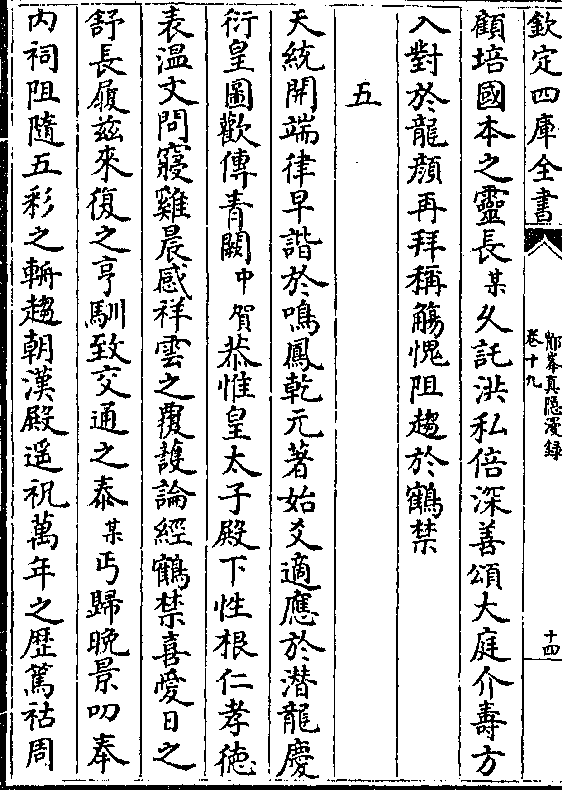 欽定四庫全書
鄮峯真隠漫録
卷十九
十四
顧培國本之靈長某久託洪私倍深善頌大庭介壽方
入對於龍顔再拜稱觴愧阻趨於鶴禁
五
天統開端律早諧於鳴鳳乾元著始爻適應於潜龍慶
衍皇圖歡傳青闕中賀恭惟皇太子殿下性根仁孝徳
表溫文問寢雞晨感祥雲之覆護論經鶴禁喜愛日之
舒長履兹來復之亨馴致交通之泰某丐歸晚景叨奉
内祠阻隨五彩之輧趨朝漢殿遥祝萬年之歴篤祜周